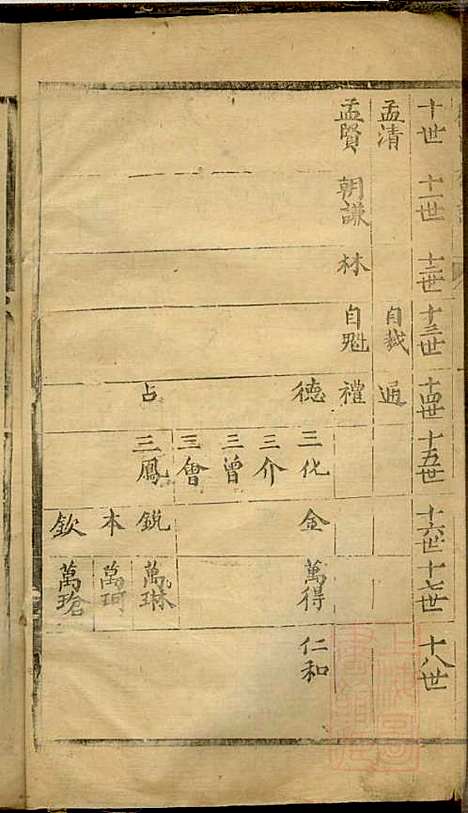 十世 十一世 十二世 十三世 十四世 十五世 十六世 十七世 十八世
孟清 自栽 通
孟賢 朝謙 林 自魁 禮
德 三化 金 萬得 仁和
三介
三曾
三會
占 三鳳 鋭 萬琳
本 萬珂
欽 萬瑲